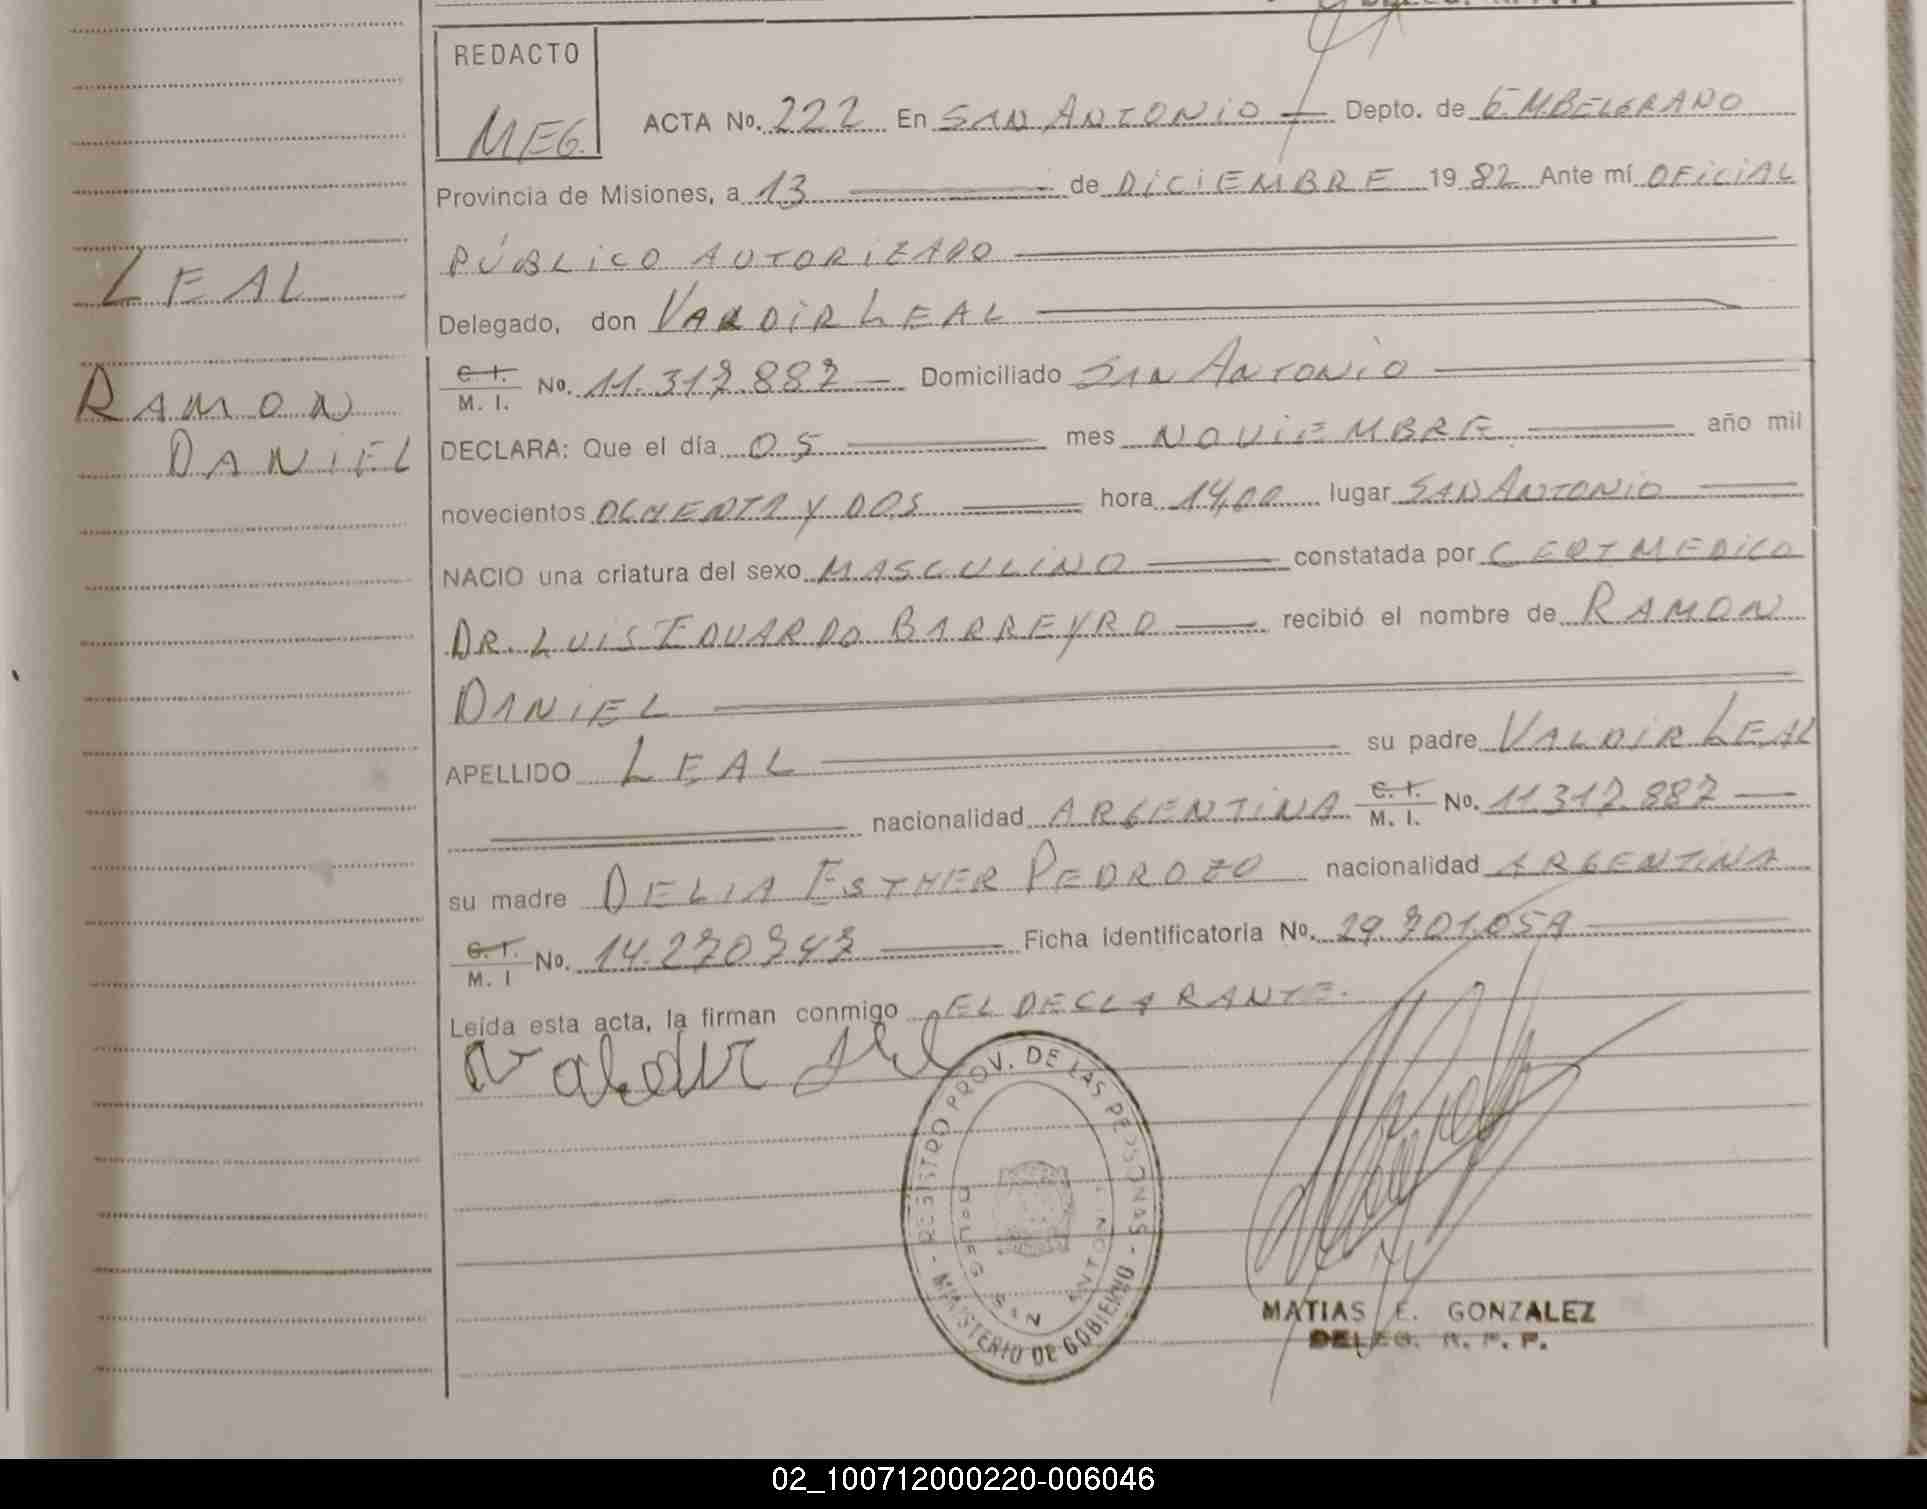 REDACTO
MEG.
ACTA No. 222 En SAN ANTONIO Depto. de G.M.BELGRANO
Provincia de Misiones, a 13 de DICIEMBRE 19 82 Ante mí OFICIAL
PÚBLICO AUTORIZADO
Delegado, don VALDIR LEAL
C. I.
M. I. No. 11.317.887 Domiciliado SAN ANTONIO
DECLARA: Que el día 05 mes NOVIEMBRE año mil
novecientos OCHENTA Y DOS hora 14,00 lugar SAN ANTONIO
NACIO una criatura del sexo MASCULINO constatada por CERT MEDICO
DR. LUIS EDUARDO BARREYRO recibió el nombre de RAMON
DANIEL
APELLIDO LEAL su padre VALDIR LEAL
nacionalidad ARGENTINA C. I. M. I. No. 11.317.887
su madre DELIA ESTHER PEDROZO nacionalidad ARGENTINA
C. I.
M. I No. 14.270.747 Ficha identificatoria No. 29.701.059
Leída esta acta, la firman conmigo EL DECLARANTE.
Valdir Leal
LEAL
RAMON
DANIEL
REGISTRO PROV. DE LAS PERSONAS - MINISTERIO DE GOBIERNO -
SAN ANTONIO
MATIAS E. GONZALEZ
DELEG. R. P. P.
02_100712000220-006046